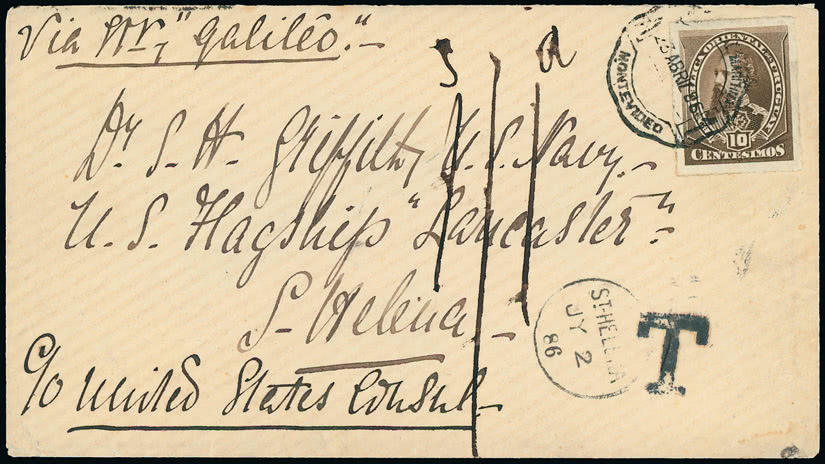 Via Str, "Galileo."
s d
MONTEVIDEO
23 ABRIL 86
REPUBLICA ORIENTAL URUGUAY
10
CENTESIMOS
Dr. S. H. Griffith, U. S. Navy.
U. S. Flagship "Lancaster"
St Helena
ST. HELENA
JY 2
86
T
c/o United States Consul